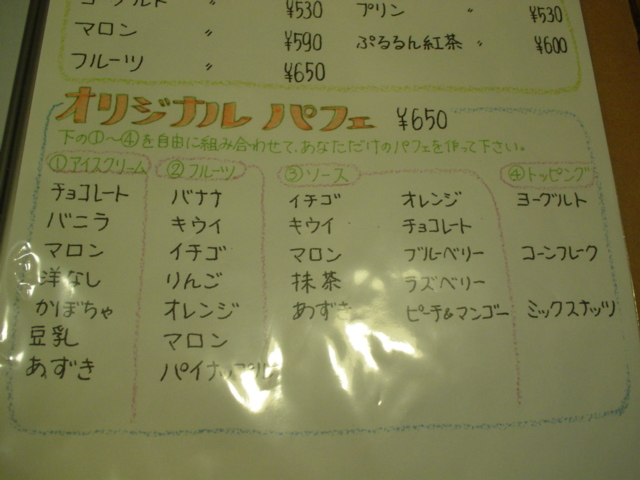 ヨーグルト 〃 ¥530
プリン 〃 ¥530
マロン 〃 ¥590
ぷるるん紅茶 〃 ¥600
フルーツ 〃 ¥650
オリジナル パフェ ¥650
下の①~④を自由に組み合わせて、あなただけのパフェを作って下さい。
①アイスクリーム
チョコレート
バニラ
マロン
洋なし
かぼちゃ
豆乳
あずき
②フルーツ
バナナ
キウイ
イチゴ
りんご
オレンジ
マロン
パイナップル
③ソース
イチゴ オレンジ
キウイ チョコレート
マロン ブルーベリー
抹茶 ラズベリー
あずき ピーチ&マンゴー
④トッピング
ヨーグルト
コーンフレーク
ミックスナッツ